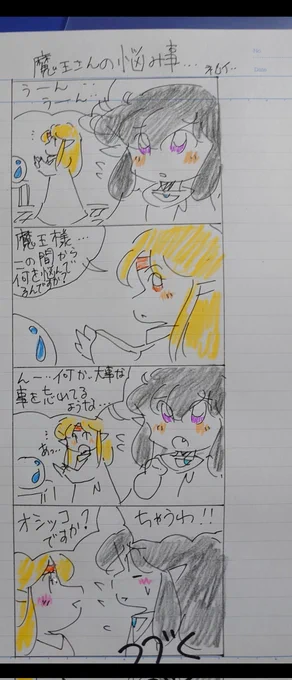 魔王さんの悩み事…
うーん
うーん…
魔王様…
この間から
何を悩んで
るんですか?
んー…何か大事な
事を忘れてる
ような…
あっ…
オシッコ
ですか?
ちゃうわ!!
つづく